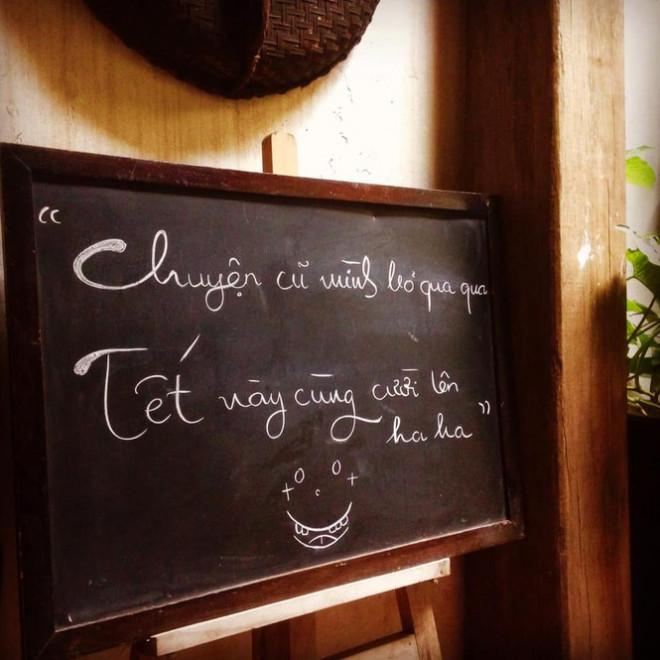 “ Chuyện cũ mình bỏ qua qua
Tết này cùng cười lên
ha ha ”